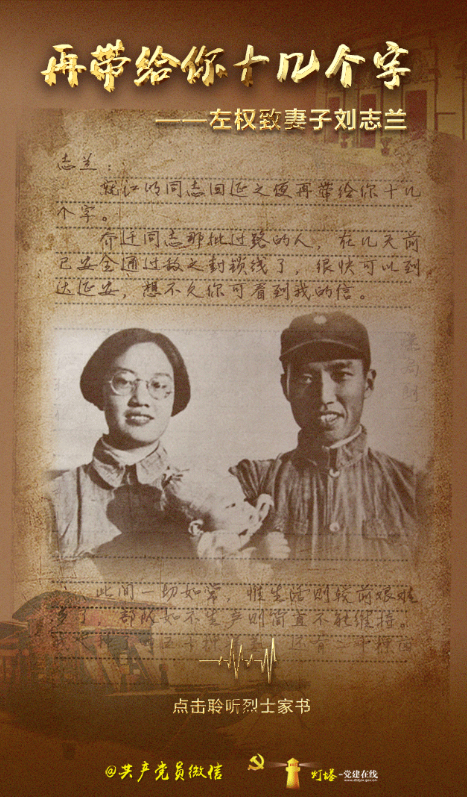 再带给你十几个字
——左权致妻子刘志兰
志兰：
就江明同志回延之便再带给你十几
个字。
乔迁同志那批过路的人，在几天前
已安全通过敌之封锁线了，很快可以到
达延安，想不久你可看到我的信。
此间一切如常，惟生活则较前艰难
多了，部队如不生产则简直不能维持。
点击聆听烈士家书
@共产党员微信
灯塔-党建在线